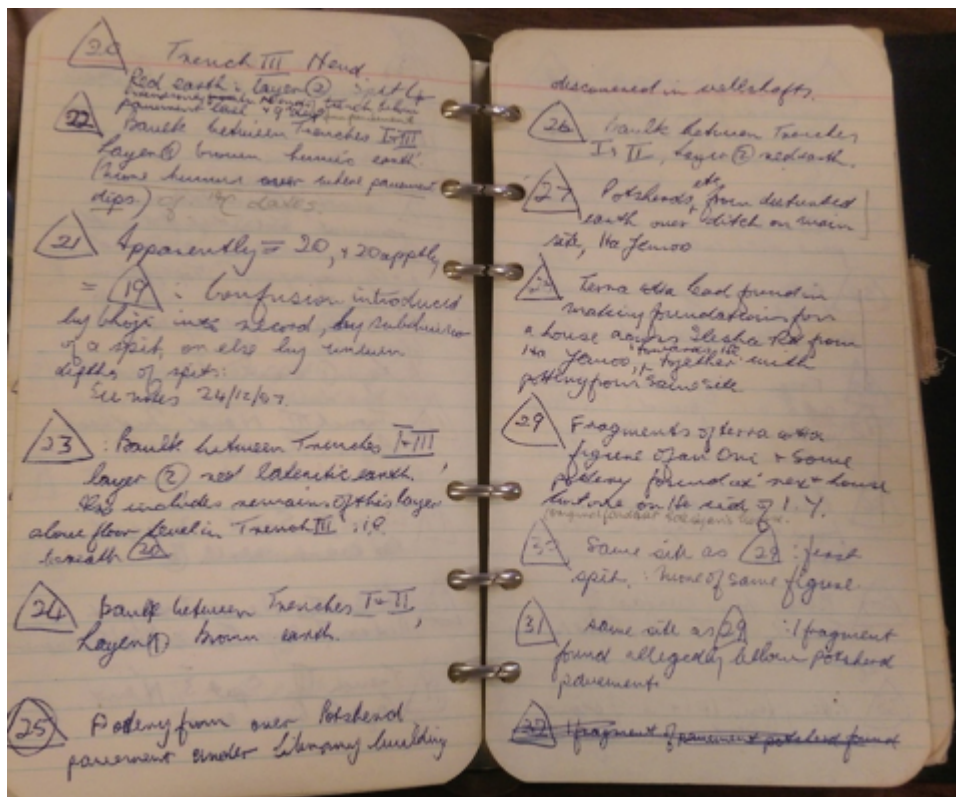 20 Trench III Nend.
Red earth: layer 2 Spit 4
pavement
22 Baulk between Trenches I+III
Layer 1 brown humic earth.
(more humus over where pavement
dips.) of dates.
21 Apparently = 20, + 20 apptly
= 19 : Confusion introduced
by into record, by subdivision
of a spit, or else by uneven
depths of spits:
See notes 24/12/57.
23 : Baulk between Trenches I+III,
layer 2 red lateritic earth.
Also includes remains of this layer
above floor level in Trench III : i.e.
beneath 20
24 Baulk between Trenches I+II,
Layer 1 Brown earth.
25 Pottery from over Potsherd
pavement under library building
discovered in wellshafts.
26 Baulk between Trenches
I + II, layer 2 red earth.
27 Potsherds, etc from disturbed
earth over ditch on main
site, Ita Yemoo
Terra cotta head found in
making foundations for
a house across Ilesha Rd from
Ita Yemoo, towards Ife, together with
pottery from same site
29 Fragments of terra cotta
figure of an Oni + some
pottery found at next house
but one on Ife side of I.Y.
house.
30 Same site as 29 : first
spit. : more of same figure.
31 Same site as 29 : 1 fragment
found allegedly below potsherd
pavement.
32 1 fragment of pavement potsherd found